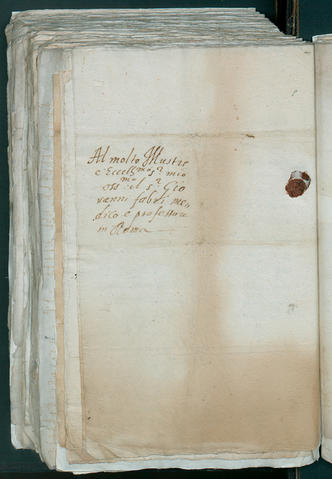 Al molto Illustre
e Eccell.mo s.r mio
oss.mo il s.r Gio
vanni fabri me
dico e professore
in Roma